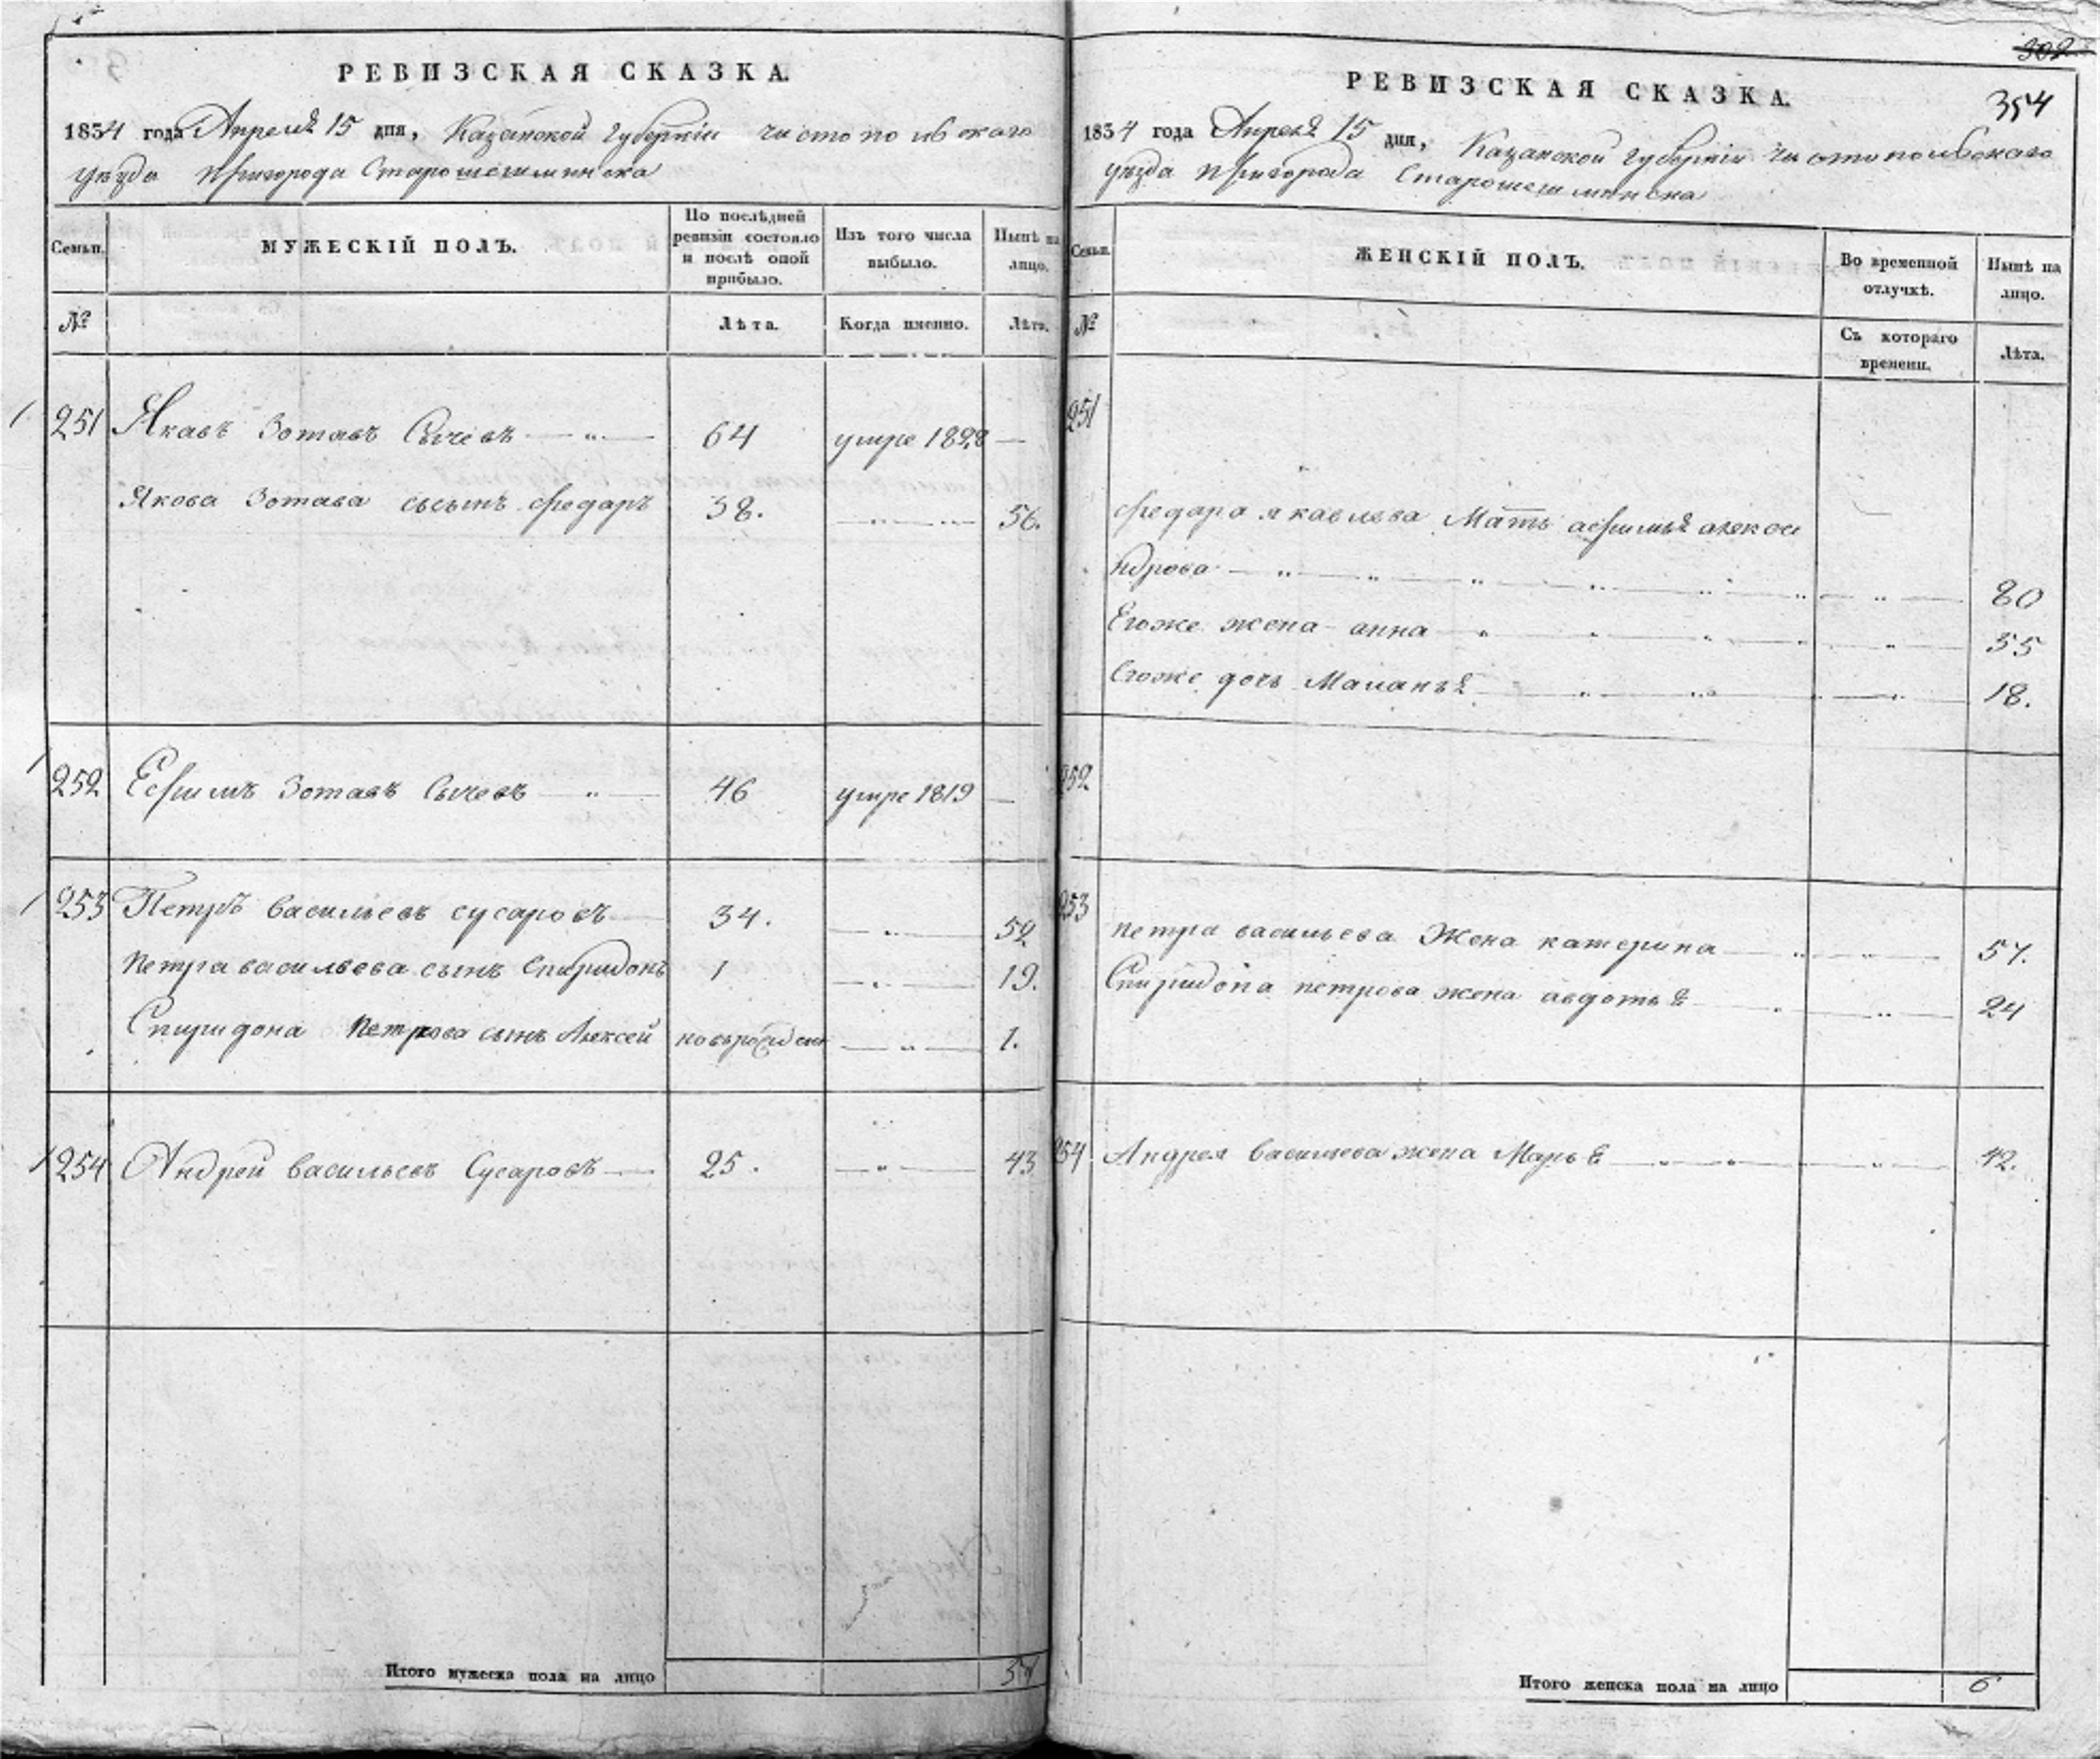 РЕВИЗСКАЯ СКАЗКА.
1834 года Апреля 15 дня, Казанской Губернии чистопольскаго
уезда пригорода Старошешминска
Семьи.
МУЖЕСКІЙ ПОЛЪ.
По послѣдней ревизіи состояло и послѣ оной прибыло.
Изъ того числа выбыло.
Нынѣ на лицо.
№
Лѣта.
Когда именно.
Лѣта.
251 Якавъ Зотавъ Сычевъ 64 умре 1828
Якова Зотава сынъ федаръ 38. 56.
252 Ефимъ Зотавъ Сычевъ 46 умре 1819
253 Петръ васильевъ сусаровъ 34. 52
петра васильева сынъ Спиридонъ 1 19.
Спиридона петрова сынъ Алексей 1.
254 Андрей васильевъ Сусаровъ 25. 43
Итого мужеска пола на лицо
302
354
РЕВИЗСКАЯ СКАЗКА.
1834 года Апреля 15 дня, Казанской губернии чистопольскаго
уезда пригорода Старошешминска
Семьи.
ЖЕНСКІЙ ПОЛЪ.
Во временной отлучкѣ.
Нынѣ на лицо.
№
Съ котораго времени.
Лѣта.
251
федара якавлева Мать афимья алекса
ндрова 80
Егоже жена анна 55
Егоже дочь Маланья 18.
252
253 петра васильева Жена катерина 57.
Спиридона петрова жена авдотья 24
254 Андрея васильева жена Марья 42.
Итого женска пола на лицо 6